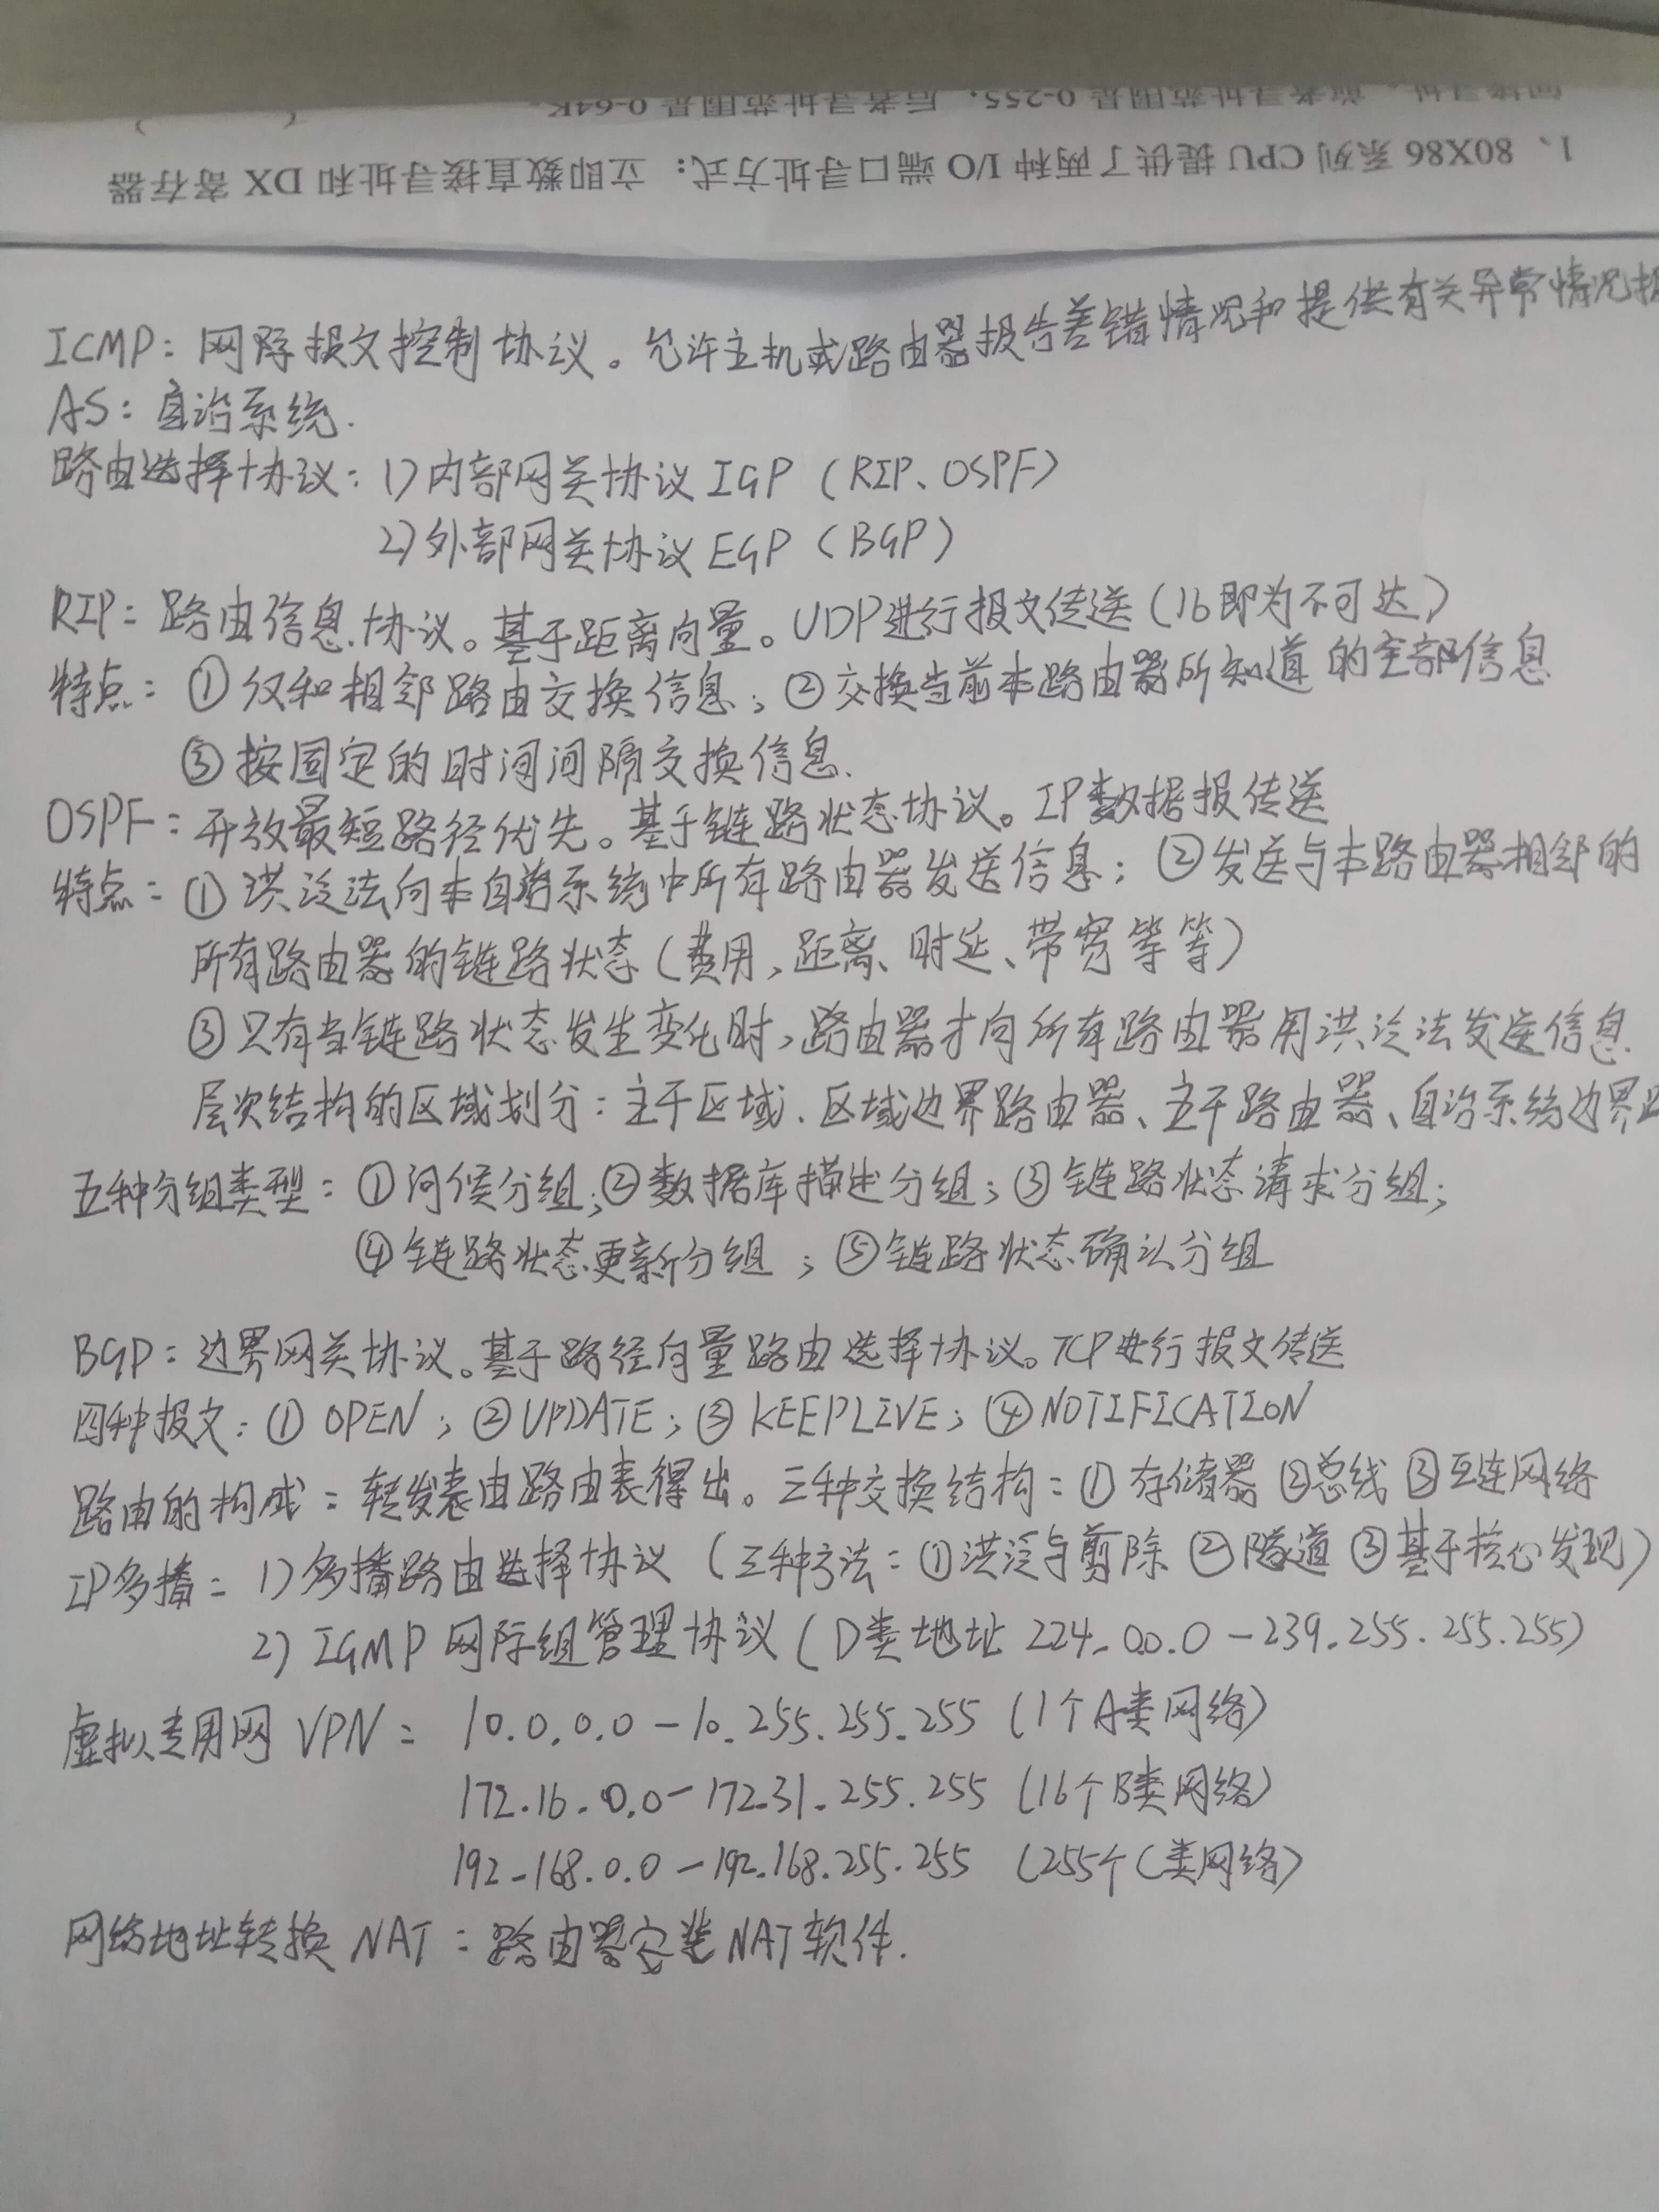 间接寻址，前者寻址范围是 0-255，后者寻址范围是 0-64K。 ( )
1、80X86 系列 CPU 提供了两种 I/O 端口寻址方式：立即数直接寻址和 DX 寄存器
ICMP：网际报文控制协议。允许主机或路由器报告差错情况和提供有关异常情况报
AS：自治系统.
路由选择协议：1)内部网关协议IGP（RIP、OSPF）
2)外部网关协议EGP（BGP）
RIP：路由信息协议。基于距离向量。UDP进行报文传送（16即为不可达）
特点：①仅和相邻路由交换信息；②交换当前本路由器所知道的全部信息
③按固定的时间间隔交换信息.
OSPF：开放最短路径优先。基于链路状态协议。IP数据报传送
特点：①洪泛法向本自治系统中所有路由器发送信息；②发送与本路由器相邻的
所有路由器的链路状态（费用，距离、时延、带宽等等）
③只有当链路状态发生变化时，路由器才向所有路由器用洪泛法发送信息.
层次结构的区域划分：主干区域、区域边界路由器、主干路由器、自治系统边界
五种分组类型：①问候分组；②数据库描述分组；③链路状态请求分组；
④链路状态更新分组；⑤链路状态确认分组
BGP：边界网关协议。基于路径向量路由选择协议。TCP进行报文传送
四种报文：①OPEN；②UPDATE；③KEEPLIVE；④NOTIFICATION
路由的构成：转发表由路由表得出。三种交换结构：①存储器 ②总线 ③互连网络
IP多播：1)多播路由选择协议（三种方法：①洪泛与剪除 ②隧道 ③基于核心发现）
2) IGMP 网际组管理协议（D类地址 224.0.0.0-239.255.255.255）
虚拟专用网 VPN： 10.0.0.0-10.255.255.255（1个A类网络）
172.16.0.0-172.31.255.255（16个B类网络）
192.168.0.0-192.168.255.255（255个C类网络）
网络地址转换 NAT：路由器安装NAT软件.